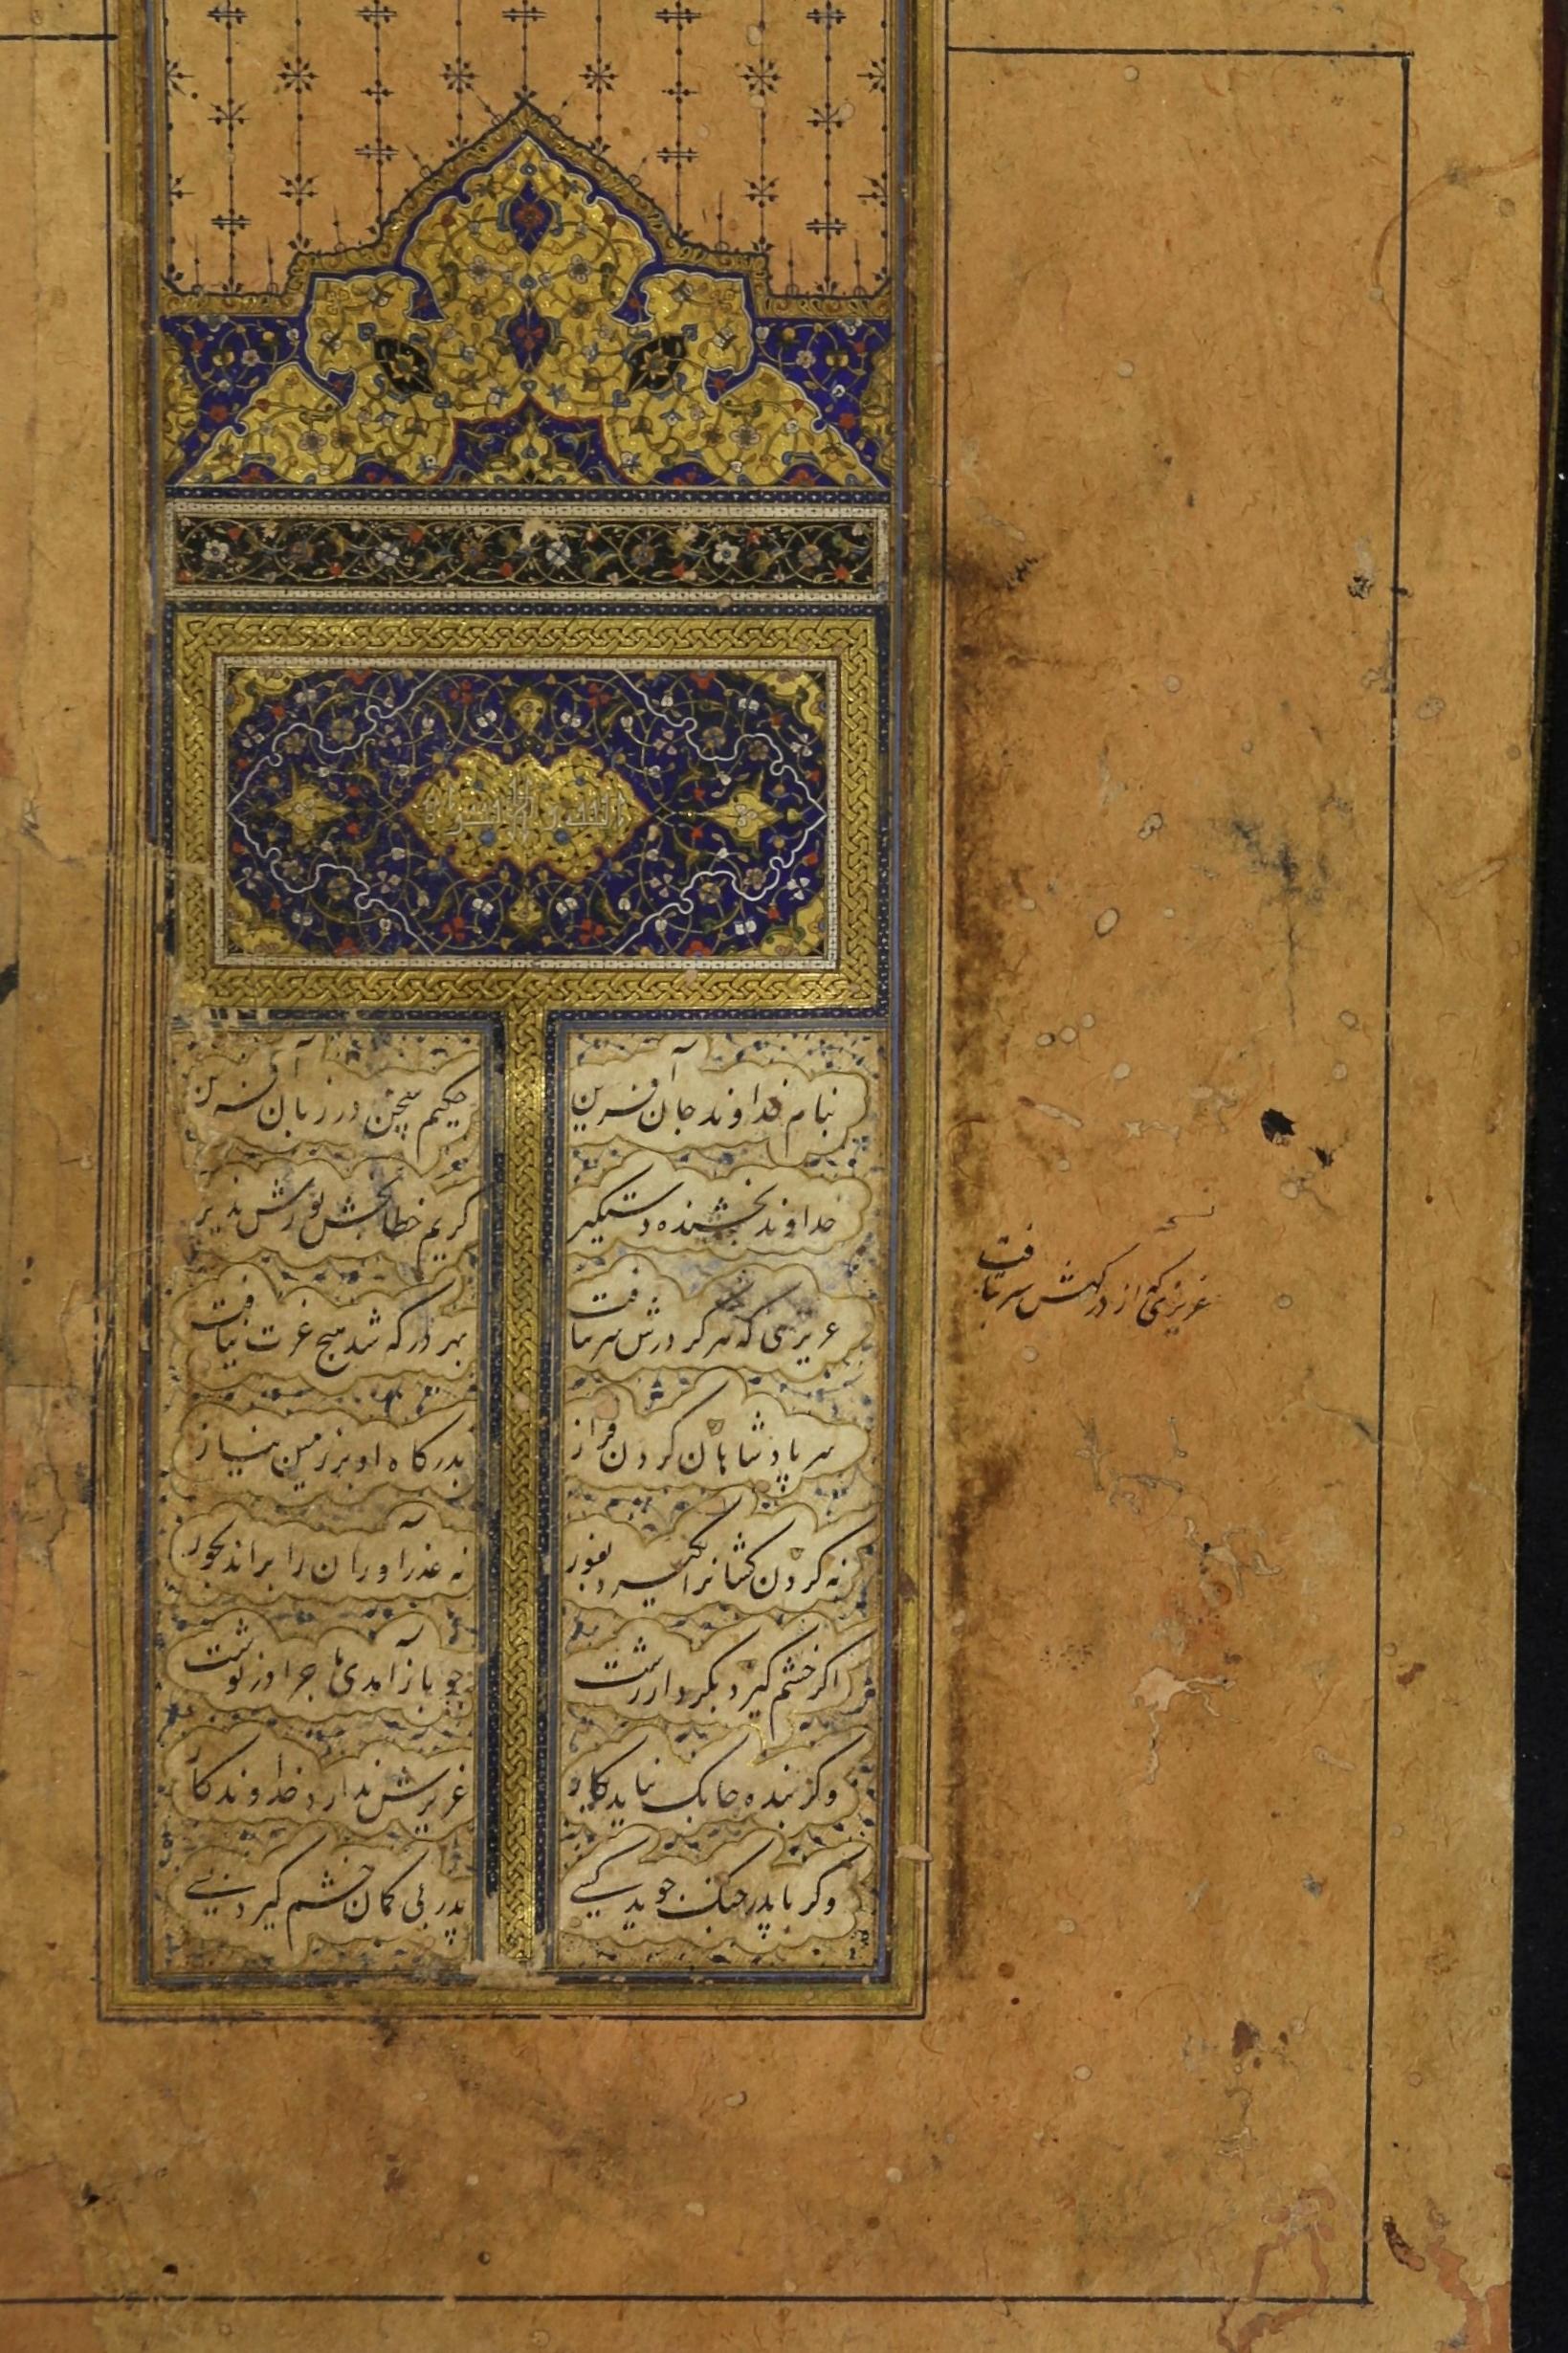 بنام خداوند جان آفرین
حکیم سخن در زبان آفرین
خداوند بخشنده دستگیر
کریم خطابخش پوزش پذیر
عزیزی که هر کز درش سر بتافت
بهر در که شد هیچ عزت نیافت
سر پادشاهان کردن فراز
بدرکاه او بر زمین نیاز
نه کردن کشانرا بکیرد بفور
نه عذرآورانرا براند بجور
اکر خشم کیرد بکردار زشت
چو بازآمدی ماجرا درنوشت
وکر بنده چابک نیاید بکار
عزیزش ندارد خداوندکار
وکر با پدر جنک جوید کسی
پدر بی کمان خشم کیرد بسی
نسخه
عزیزی که از درکهش سر بتافت